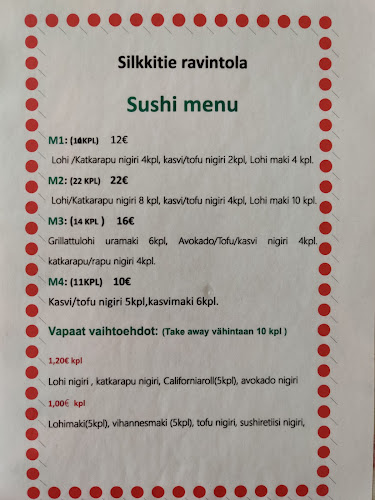 Silkkitie ravintola
Sushi menu
M1: (10KPL) 12€
Lohi /Katkarapu nigiri 4kpl, kasvi/tofu nigiri 2kpl, Lohi maki 4 kpl.
M2: (22 KPL) 22€
Lohi/Katkarapu nigiri 8 kpl, kasvi/tofu nigiri 4kpl, Lohi maki 10 kpl.
M3: (14 KPL ) 16€
Grillattulohi uramaki 6kpl, Avokado/Tofu/kasvi nigiri 4kpl.
katkarapu/rapu nigiri 4kpl.
M4: (11KPL) 10€
Kasvi/tofu nigiri 5kpl,kasvimaki 6kpl.
Vapaat vaihtoehdot: (Take away vähintaan 10 kpl )
1,20€ kpl
Lohi nigiri , katkarapu nigiri, Californiaroll(5kpl), avokado nigiri
1,00€ kpl
Lohimaki(5kpl), vihannesmaki (5kpl), tofu nigiri, sushiretiisi nigiri,